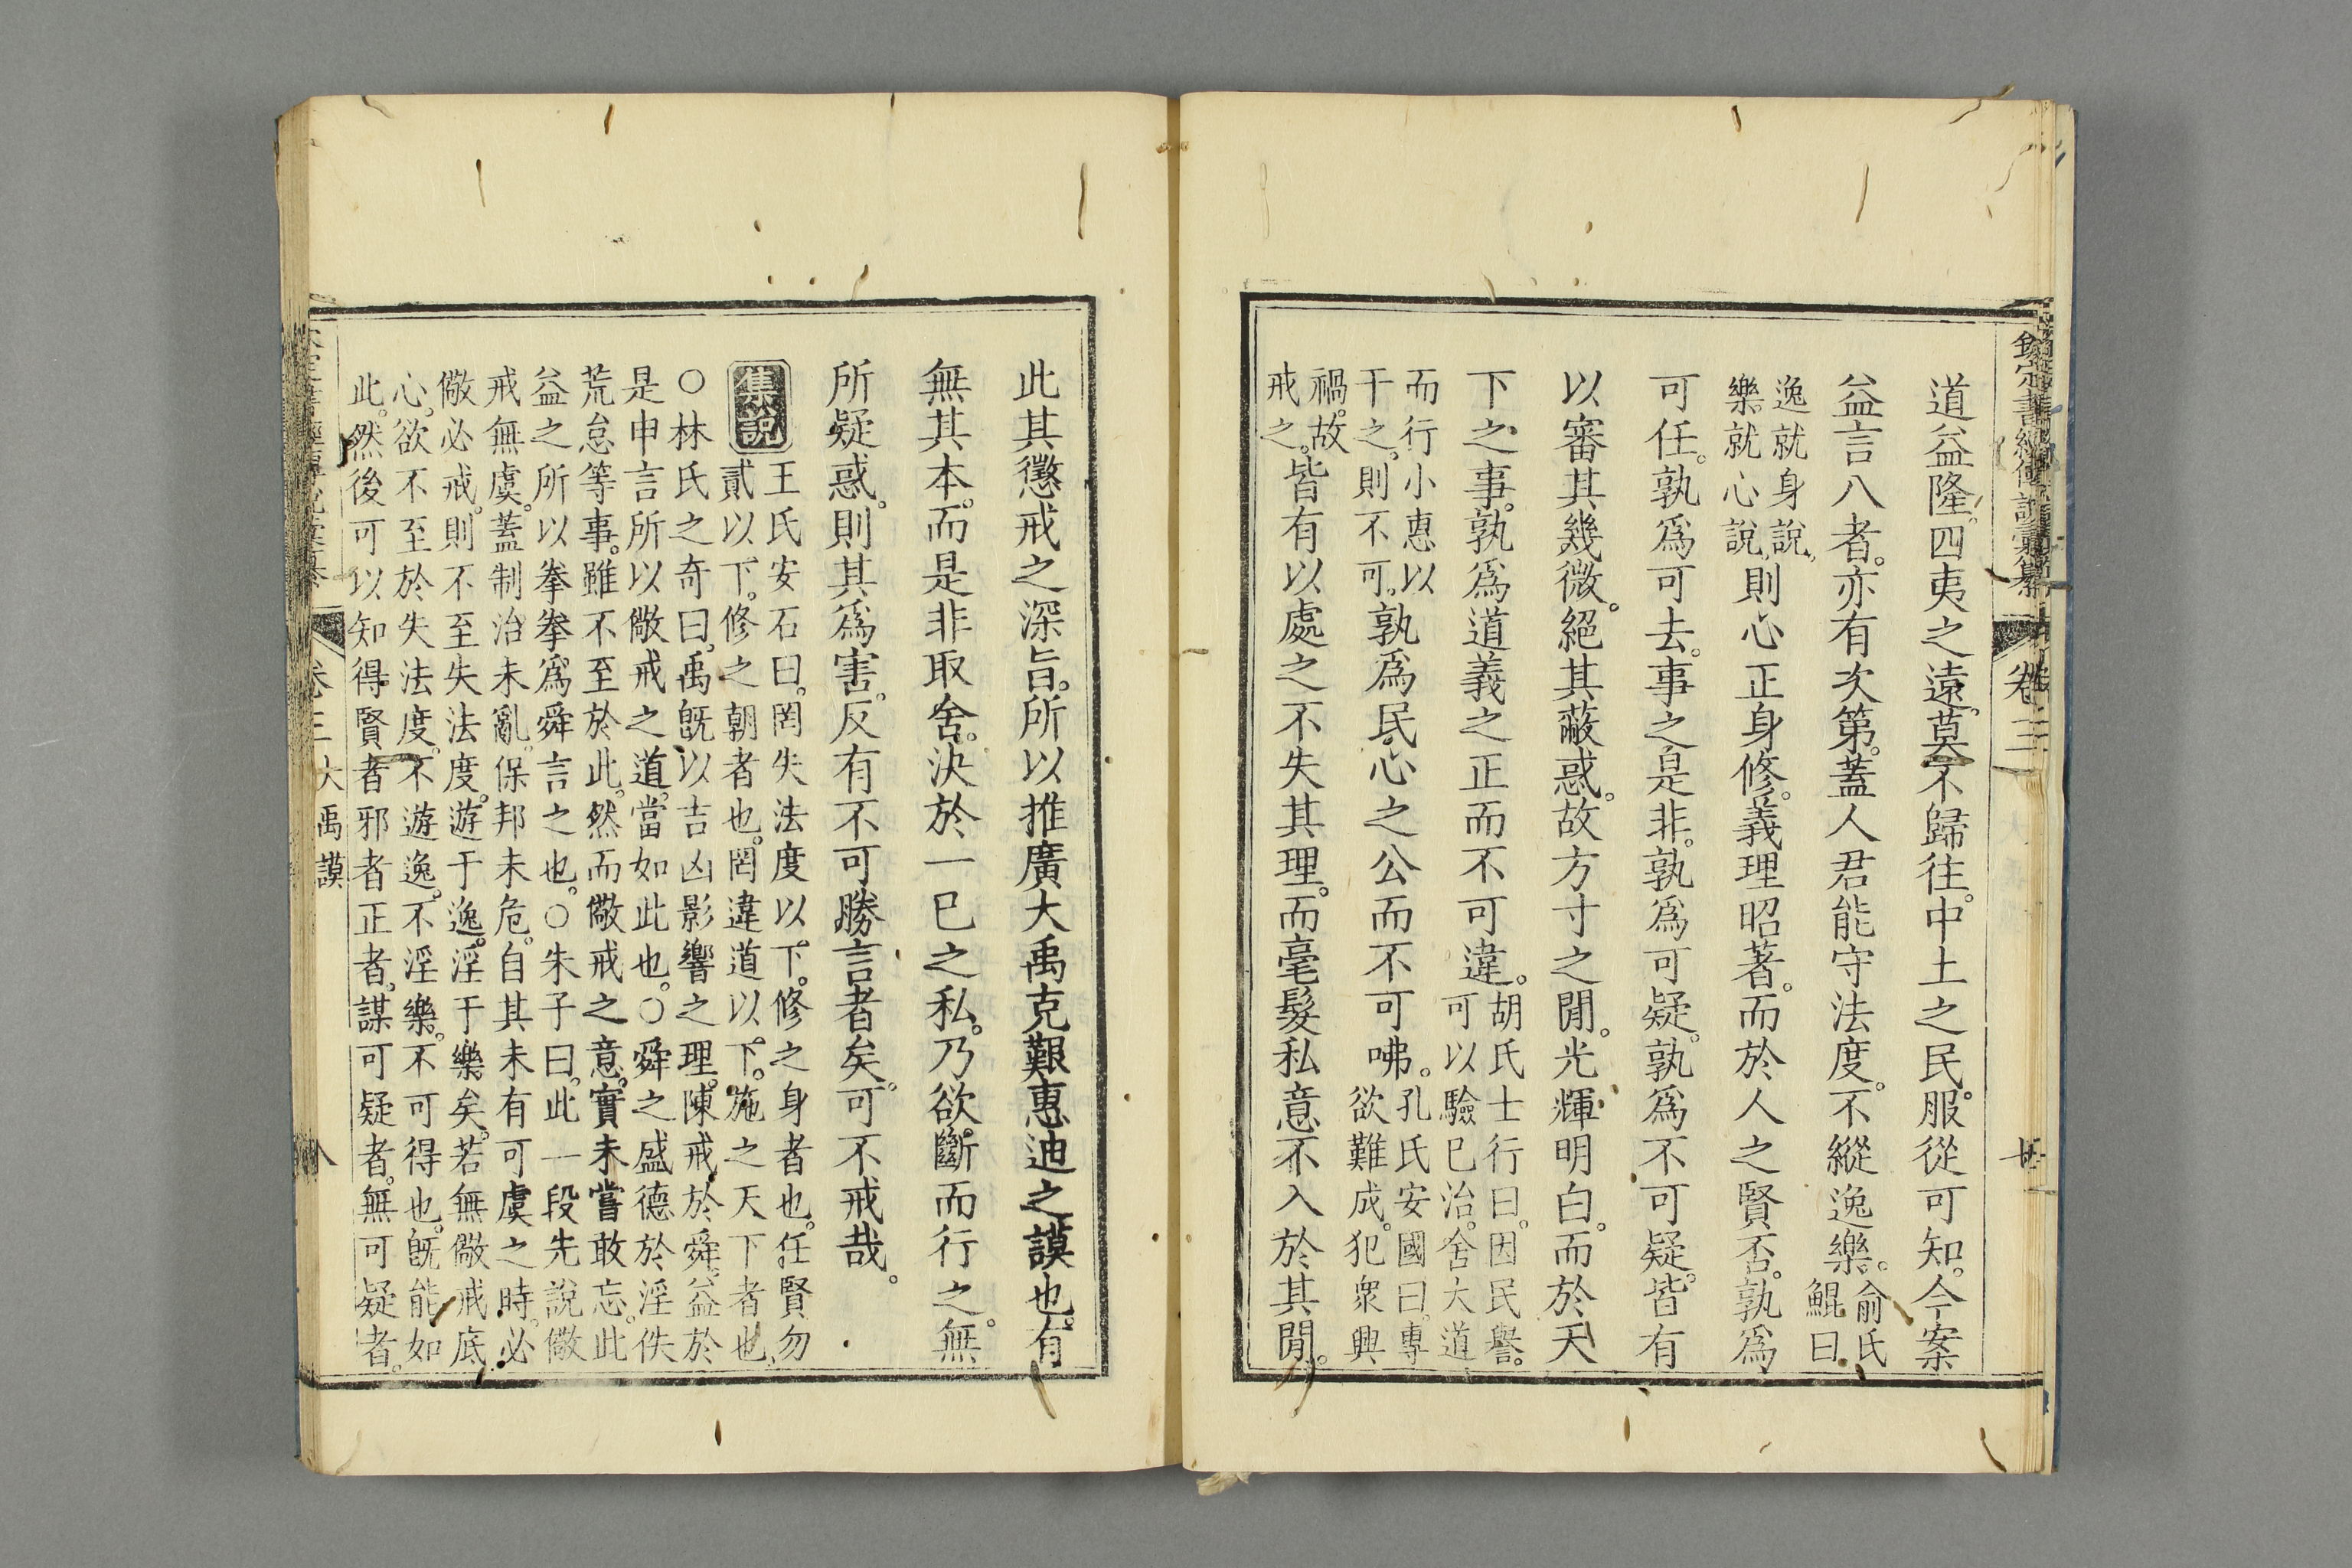 欽定書經傳說彙纂
卷三
道益隆。四夷之遠。莫不歸往。中土之民服從可知。今案
益言八者。亦有次第。蓋人君能守法度。不縱逸樂。俞氏
鯤曰
逸就身說。
樂就心說。則心正身修。義理昭著。而於人之賢否。孰爲
可任。孰爲可去。事之是非。孰爲可疑。孰爲不可疑。皆有
以審其幾微。絕其蔽惑。故方寸之閒。光輝明白。而於天
下之事。孰爲道義之正而不可違。胡氏士行曰。因民譽。
可以驗已治。舍大道
而行小惠以
干之。則不可。孰爲民心之公而不可咈。孔氏安國曰。專
欲難成。犯衆興
禍。故
戒之。皆有以處之不失其理。而毫髮私意不入於其閒。
此其懲戒之深旨。所以推廣大禹克艱惠迪之謨也。有
無其本。而是非取舍。決於一已之私。乃欲斷而行之。無
所疑惑。則其爲害。反有不可勝言者矣。可不戒哉。
集說
王氏安石曰。罔失法度以下。修之身者也。任賢勿
貳以下。修之朝者也。罔違道以下。施之天下者也。
○林氏之奇曰。禹旣以吉凶影響之理。陳戒於舜。益於
是申言所以儆戒之道。當如此也。○舜之盛德於淫佚
荒怠等事。雖不至於此。然而儆戒之意。實未嘗敢忘。此
益之所以拳拳爲舜言之也。○朱子曰。此一段先說儆
戒無虞。蓋制治未亂。保邦未危。自其未有可虞之時。必
儆必戒。則不至失法度。游于逸。淫于樂矣。若無儆戒底
心。欲不至於失法度。不遊逸。不淫樂。不可得也。旣能如
此。然後可以知得賢者邪者正者。謀可疑者。無可疑者。
卷三 大禹謨
八